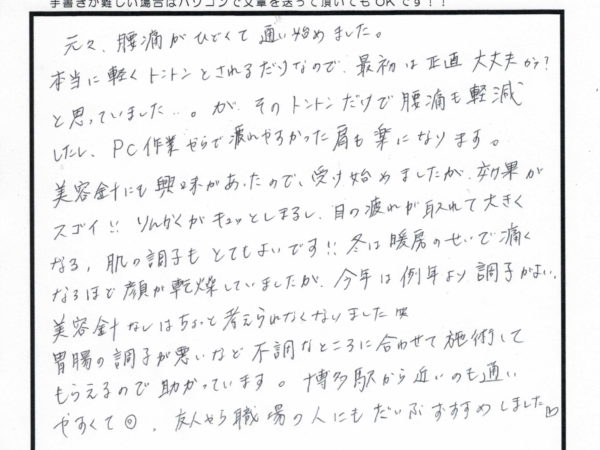 手書きが難しい場合はパソコンで文章を送って頂いてもOKです！！
元々、腰痛がひどくて通い始めました。
本当に軽くトントンとされるだけなので、最初は正直大丈夫かな?
と思っていました…。が、そのトントンだけで腰痛も軽減
したし、PC作業やらで疲れやすかった肩も楽になります。
美容針にも興味があったので、受け始めましたが、効果が
スゴイ!! りんかくがキュッとしまるし、目の疲れが取れて大きく
なる。肌の調子もとてもよいです!! 冬は暖房のせいで痛く
なるほど顔が乾燥していましたが、今年は例年より調子がよい。
美容針なしはちょっと考えられなくなりましたw
胃腸の調子が悪いなど不調なところに合わせて施術して
もらえるので助かっています。博多駅から近いのも通い
やすくて◎。友人やら職場の人にもだいぶおすすめしました♡